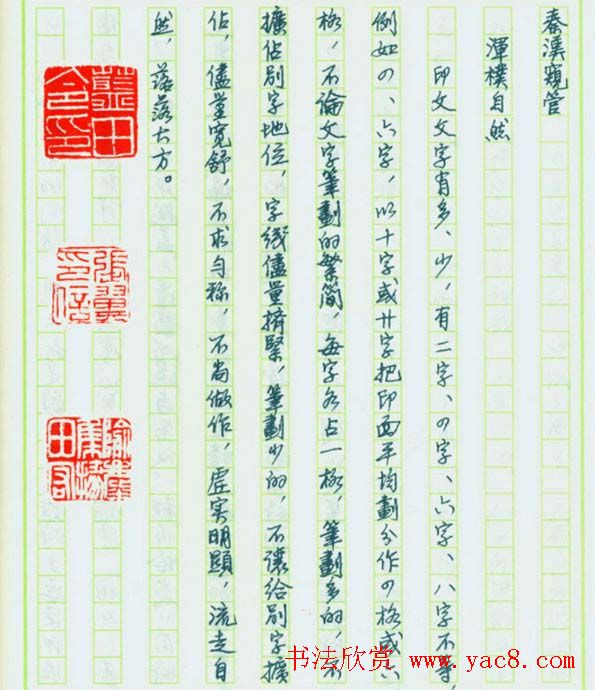 秦漢窺管
渾樸自然
印文文字有多、少，有二字、四字、六字、八字不等
例如四、六字，以十字或廿字把印面平均劃分作四格或六
格，不論文字筆劃的繁簡，每字各占一格，筆劃多的，不
擴佔别字地位，字綫儘量擠緊，筆劃少的，不讓給别字擴
佔，儘量寬舒，不求勻称，不尚做作，虛实明顯，流走自
然，落落大方。
張翼
印信
书法欣赏 www.yac8.com